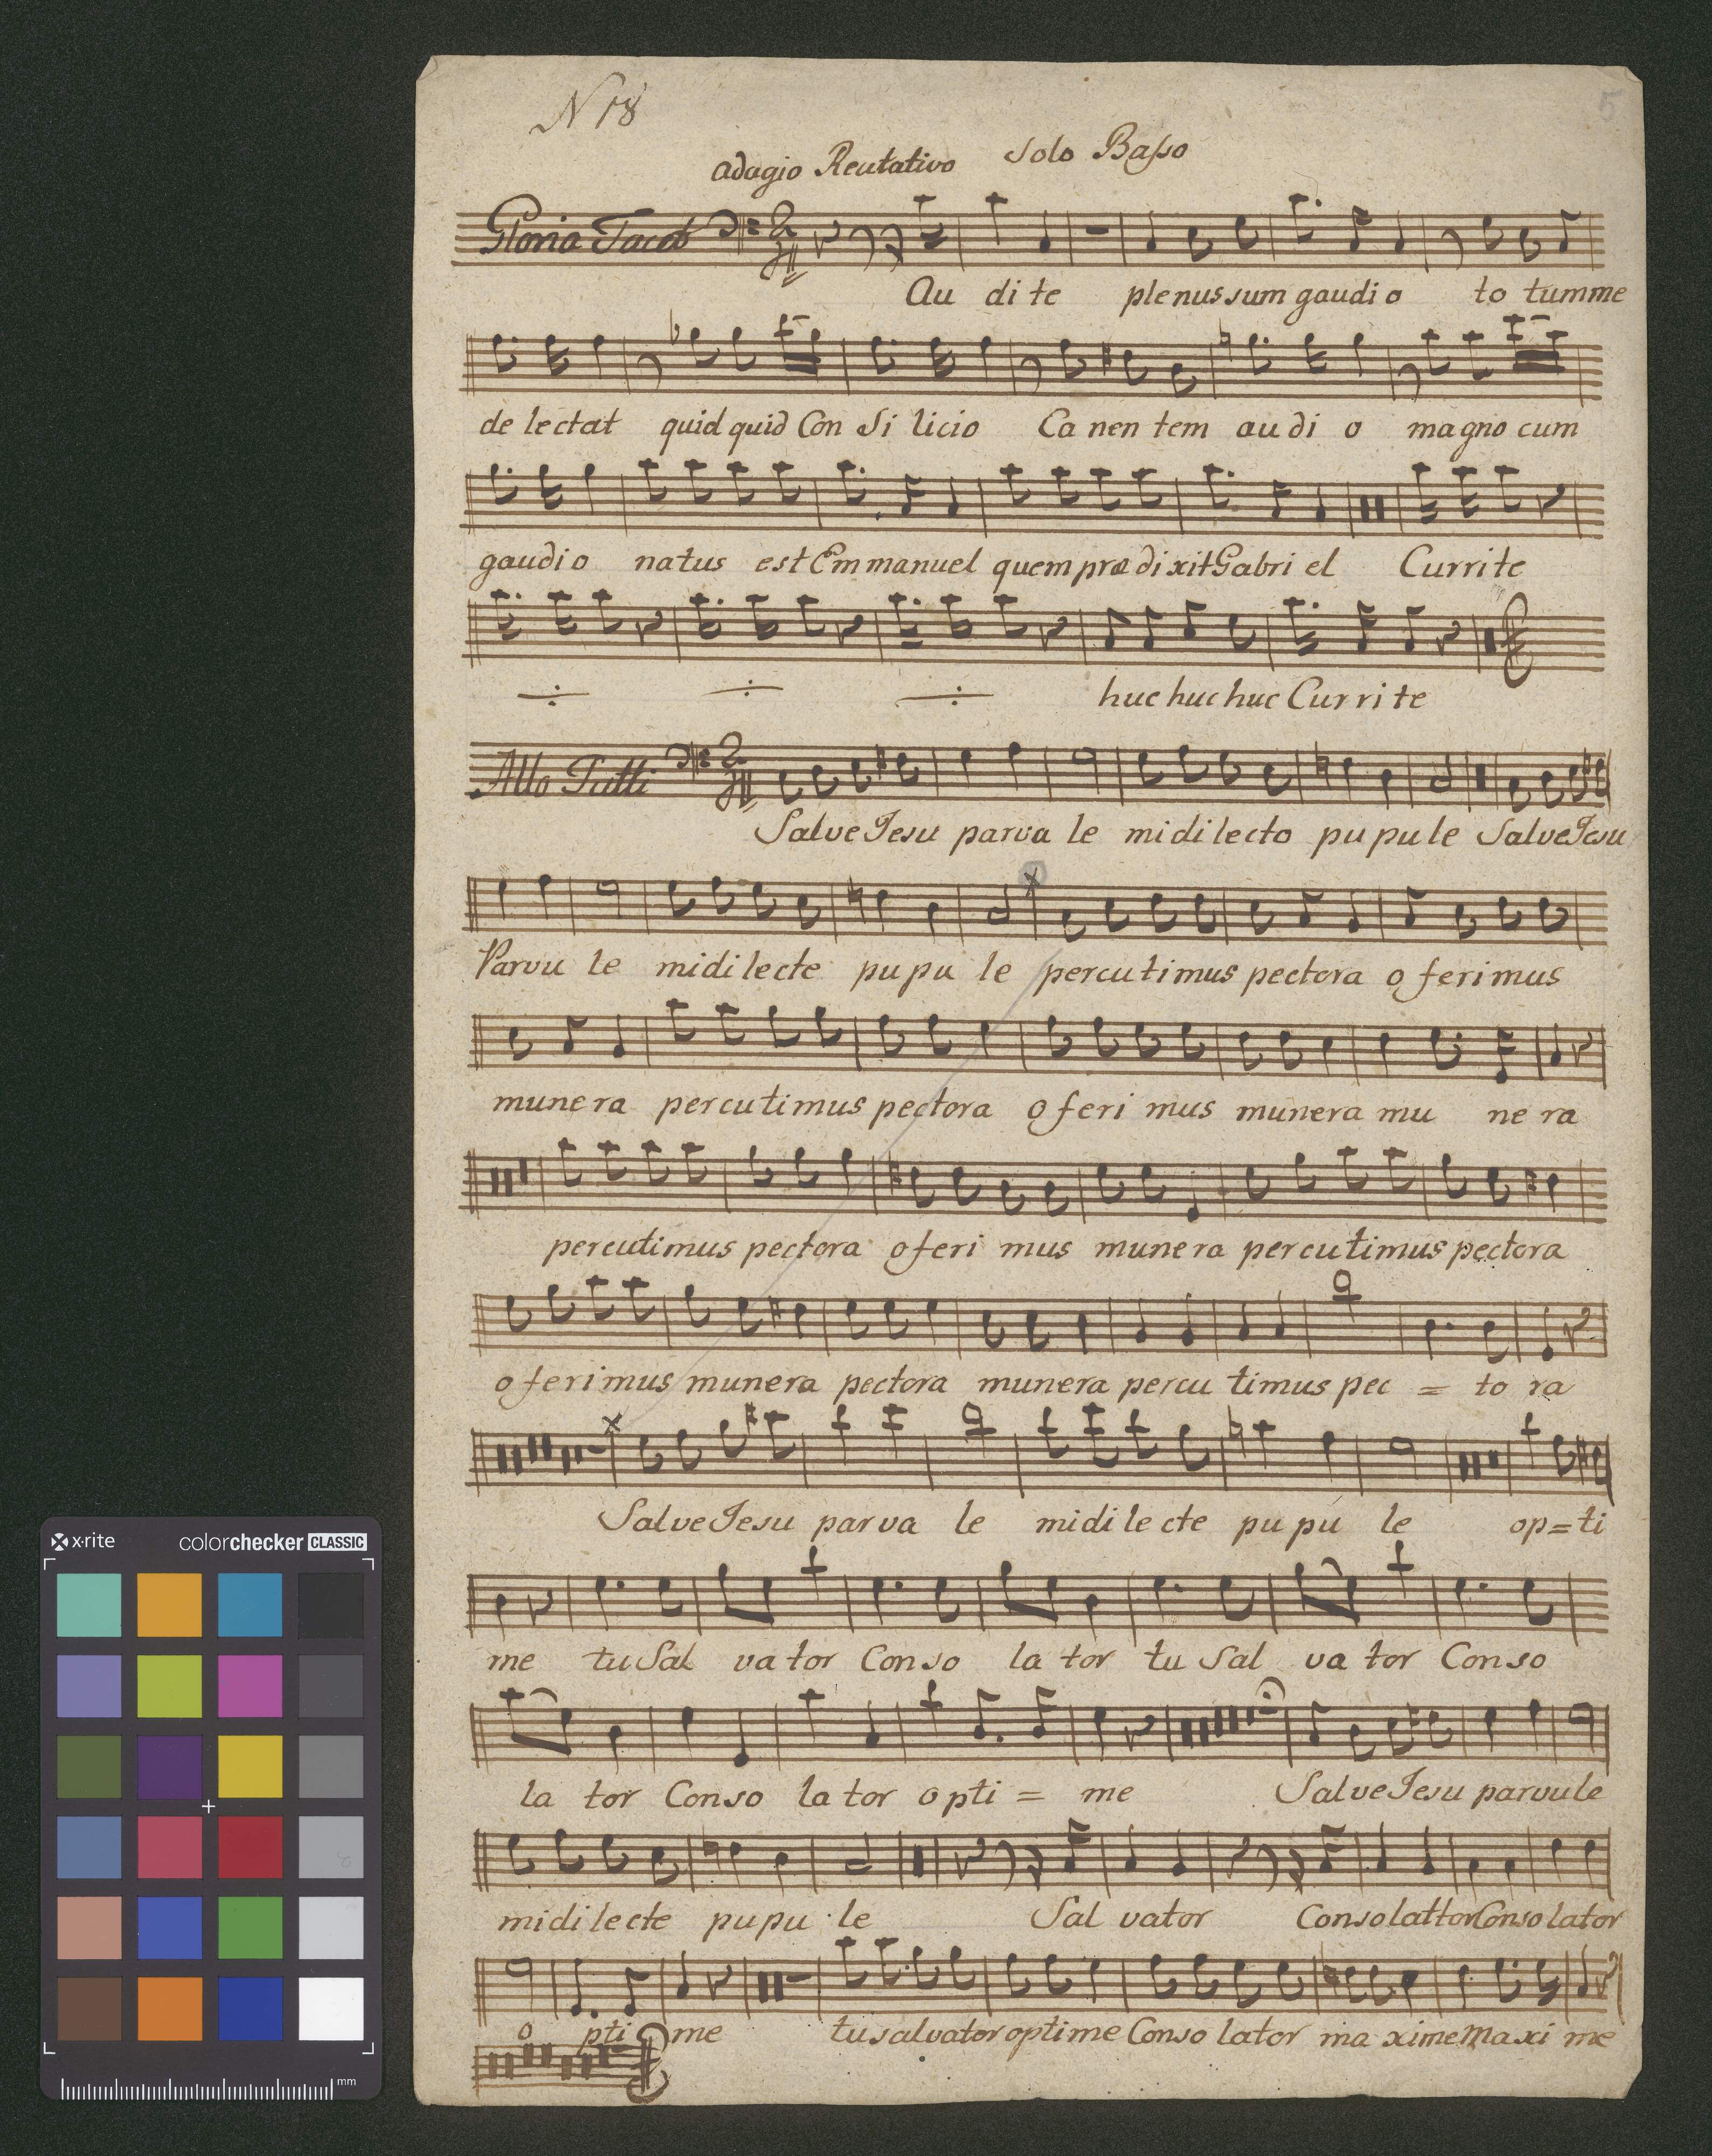 N 18
5
adagio Recitativo Solo Basso
Gloria Jacob
Au di te plenus sum gaudi o to tum me
de lectat quid quid Con Si licio Ca nen tem au di o magno cum
gaudi o natus est Emmanuel quem præ di xit Gabri el Currite
huc huc huc Cur ri te
Allo Tutti
Salve Jesu parva le mi di lecto pu pu le Salve Jesu
Parvu le mi di lecte pu pu le percutimus pectora o ferimus
mune ra percutimus pectora o feri mus munera mu ne ra
percutimus pectora o feri mus mune ra percutimus pectora
o ferimus munera pectora munera percu timus pec = to ra
Salve Jesu par va le mi di le cte pu pu le op=ti
me tu Sal va tor Con so la tor tu Sal va tor Con so
la tor Con so la tor o pti = me Salve Jesu parvule
mi di lecte pu pu le Sal vator Consolattor Consolator
o pti me tu salvator optime Conso lator ma xime Maxi me
x·rite colorchecker CLASSIC
mm